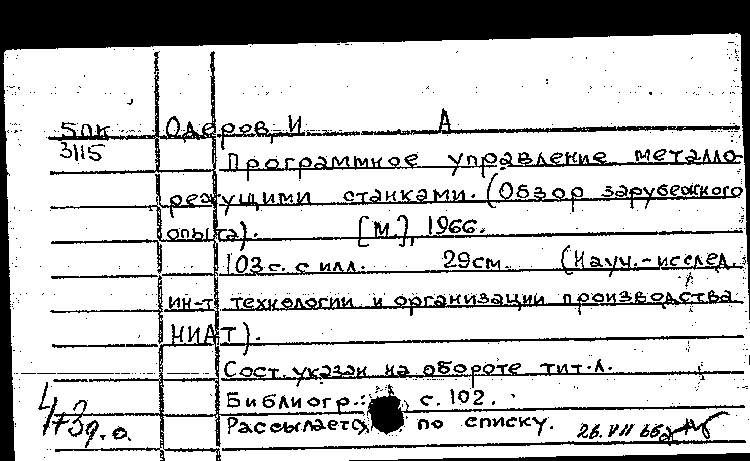 БПК Одеров, И А
3115
Программное управление металло-
режущими станками. (Обзор зарубежного
опыта). [М.], 1966.
103 с. с илл. 29см. (Науч.-исслед.
ин-т технологии и организации производства
НИАТ).
Сост. указан на обороте тит.л.
Библиогр.: с. 102.
Рассылается по списку. 26.VII 66г